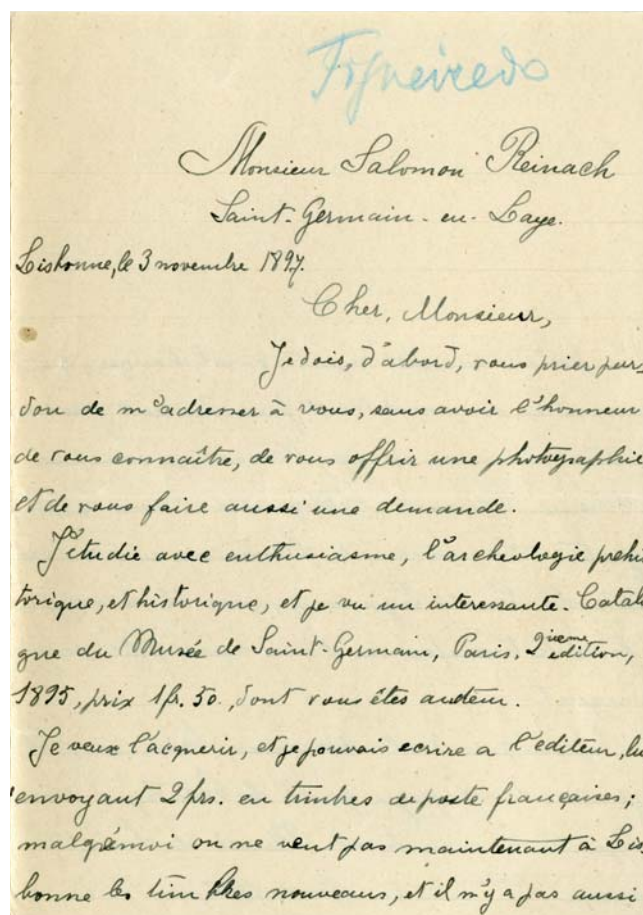 Figueiredo
Monsieur Salomon Reinach
Saint-Germain-en-Laye.
Lisbonne, le 3 novembre 1897.
Cher, Monsieur,
Je dois, d'abord, vous prier par-
don de m'adresser à vous, sans avoir l'honneur
de vous connaître, de vous offrir une photographie
et de vous faire aussi une demande.
J'etudie avec enthusiasme, l'archeologie prehi
torique, et historique, et je vu un interessante. Catal
gue du Musée de Saint-Germain, Paris, 2ieme edition,
1895, prix 1fr. 50., dont vous êtes auteur.
Je veux l'acquerir, et je pouvais ecrire a l'editeur, lu
envoyant 2 frs. en timbres de poste françaises;
malgré moi on ne vent pas maintenant à Lis
bonne les timbres nouveaus, et il n'y a pas aussi